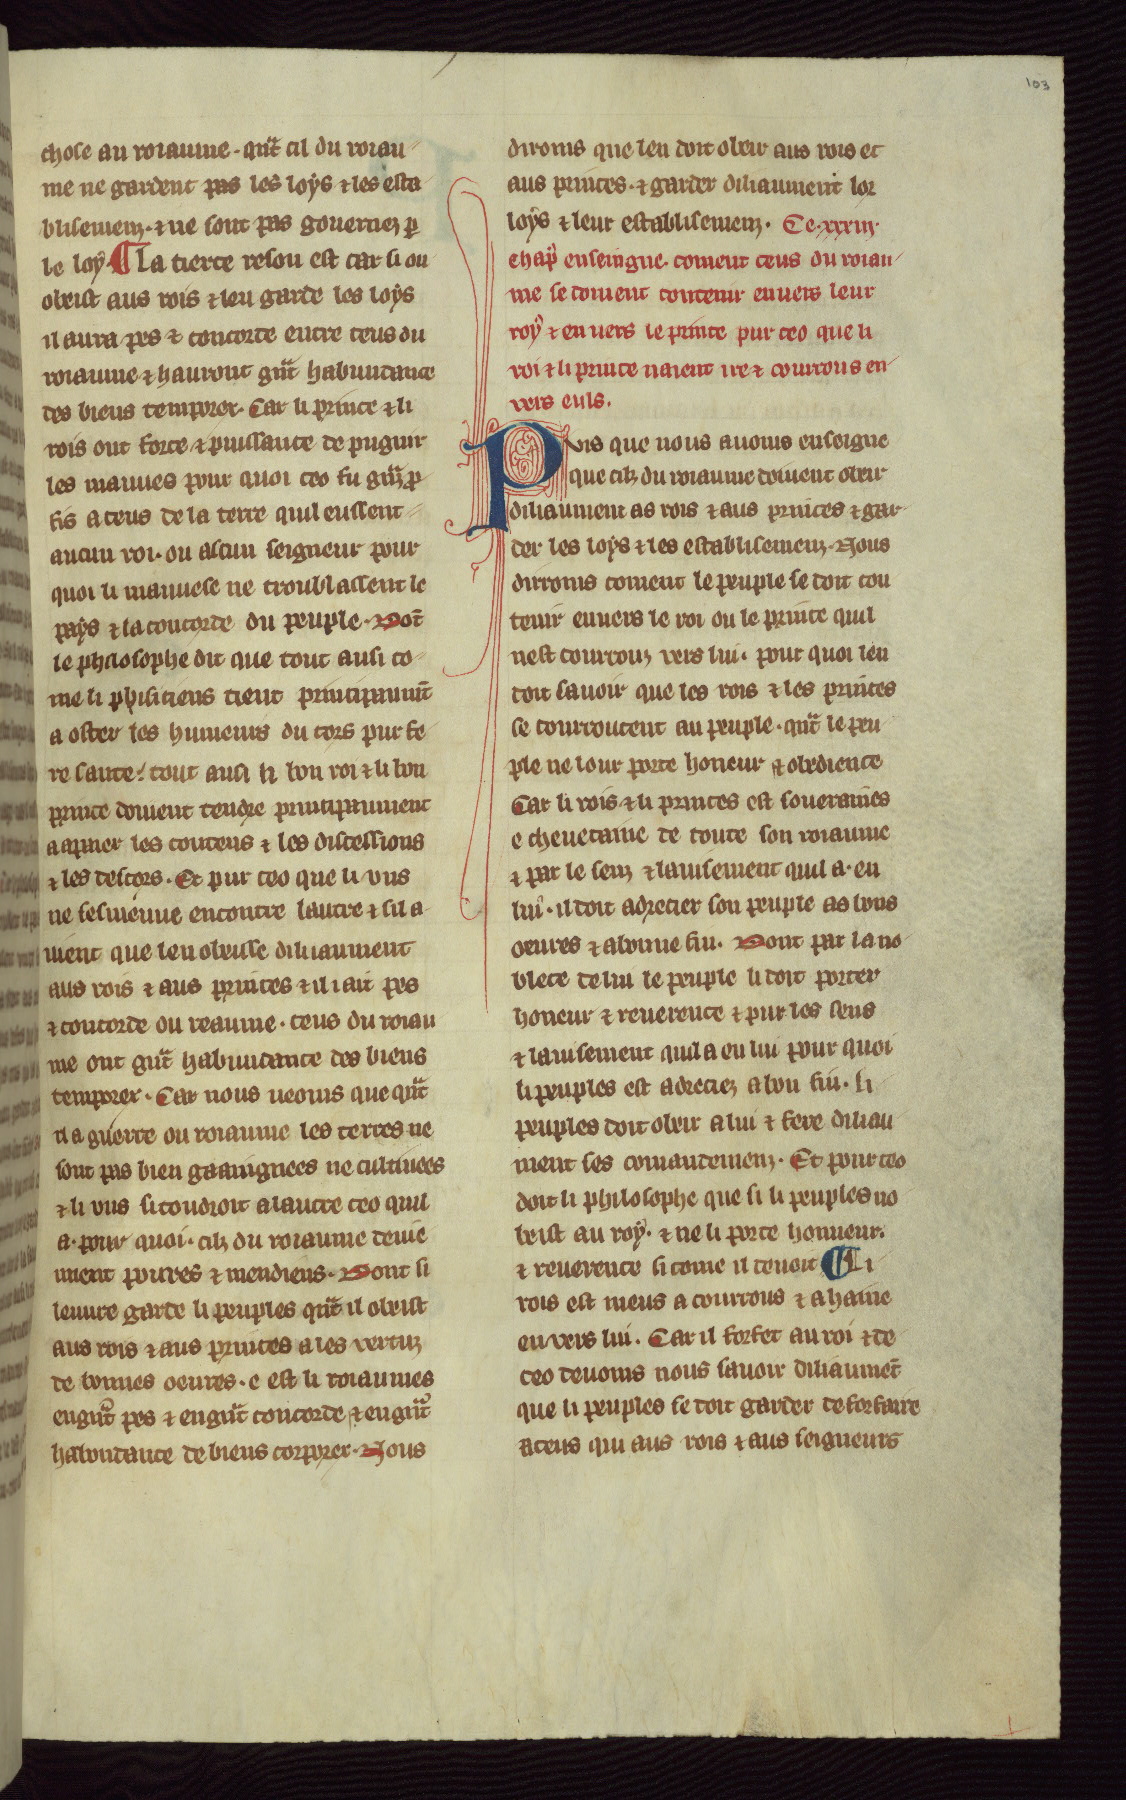 103
chose au roiaume. qñt cil du roiau-
me ne gardent pas les loys & les esta
blisemenz. & ne sont pas gouernez ꝑ
le loy. ¶ La tierce reson est car si on
obeist aus rois & leu garde les loys
il aura pes & concorde entre ceus du
roiaume & hauront gñt habundance
des biens temporex. Car li prince & li
rois ont force & puissance de pugnir
les mauues pour quoi ceo fu
fis a ceus de la terre quil eussent
aucun roi. ou ascun seigneur pour
quoi li mauuese ne troublassent le
pays & la concorde du peuple. Dōt
le philosophe dit que tout ausi co-
me li phisiciens tient principaumēt
a oster les humeurs du cors pur fe-
re sante. tout ausi li bon roi & li bon
prince doiuent tendre principaument
a apaier les contens & les discessions
& les descors. Et pur ceo que li vns
ne sesmeuue encontre lautre & sil a-
uient que leu obeisse diliaument
aus rois & aus princes & il i ait pes
& concorde ou reaume. ceus du roiau
me ont gñt habundance des biens
temporex. Car nous ueoms que qñt
il a guerre ou roiaume les terres ne
sont pas bien gaaingnees ne cultiuees
& li vns si toudroit a lautre ceo quil
a. pour quoi. cilz du roiaume deuie
nnent poures & mendiens. Dont si
leuure garde li peuples qñt il obeist
aus rois & aus princes a les vertuz
de bonnes oeures. e est li roiaumes
en gñt pes & en gñt concorde & en gñt
habundance de biens corporex. Nous
diroms que leu doit obeir aus rois et
aus princes. & garder diliaument lor
loys & leur establisemenz. Ce .xxxiii.
chap̄ enseingne. coment ceus du roiau-
me se doiuent contenir enuers leur
roy & en uers le prince pur ceo que li
roi & li prince naient ire & courrous en-
vers euls.
Puis que nous auoms enseigne
que cilz du roiaume doiuent obeir
diliaument as rois & aus princes & gar-
der les loys & les establisemenz. Nous
dirroms coment le peuple se doit con
tenir enuers le roi ou le prince quil
nest courrouz vers lui. pour quoi leu
doit sauoir que les rois & les princes
se courroucent au peuple. qñt le peu-
ple ne lour porte honeur & obedience
Car li rois & li princes est souerains
e cheuetaine de toute son roiaume
& par le senz & lauisement quil a. en
lui. il doit adrecier son peuple as bons
oeures & a bonne fin. Dont par la no-
blece de lui le peuple li doit porter
honeur & reuerence & pur les sens
& lauisement quil a en lui pour quoi
li peuples est adreciez a bon fin. li
peuples doit obeir a lui & fere diliau
ment ses comandemenz. Et pour ceo
doit li philosophe que si li peuples no
beist au roy. & ne li porte honneur.
& reuerence si come il deuoit ¶ Li
rois est meus a courrous & a haine
en vers lui. Car il forfet au roi & de
ceo deuoms nous sauoir diliaumēt
que li peuples se doit garder de forfaire
a ceus qui aus rois & aus seigneurs